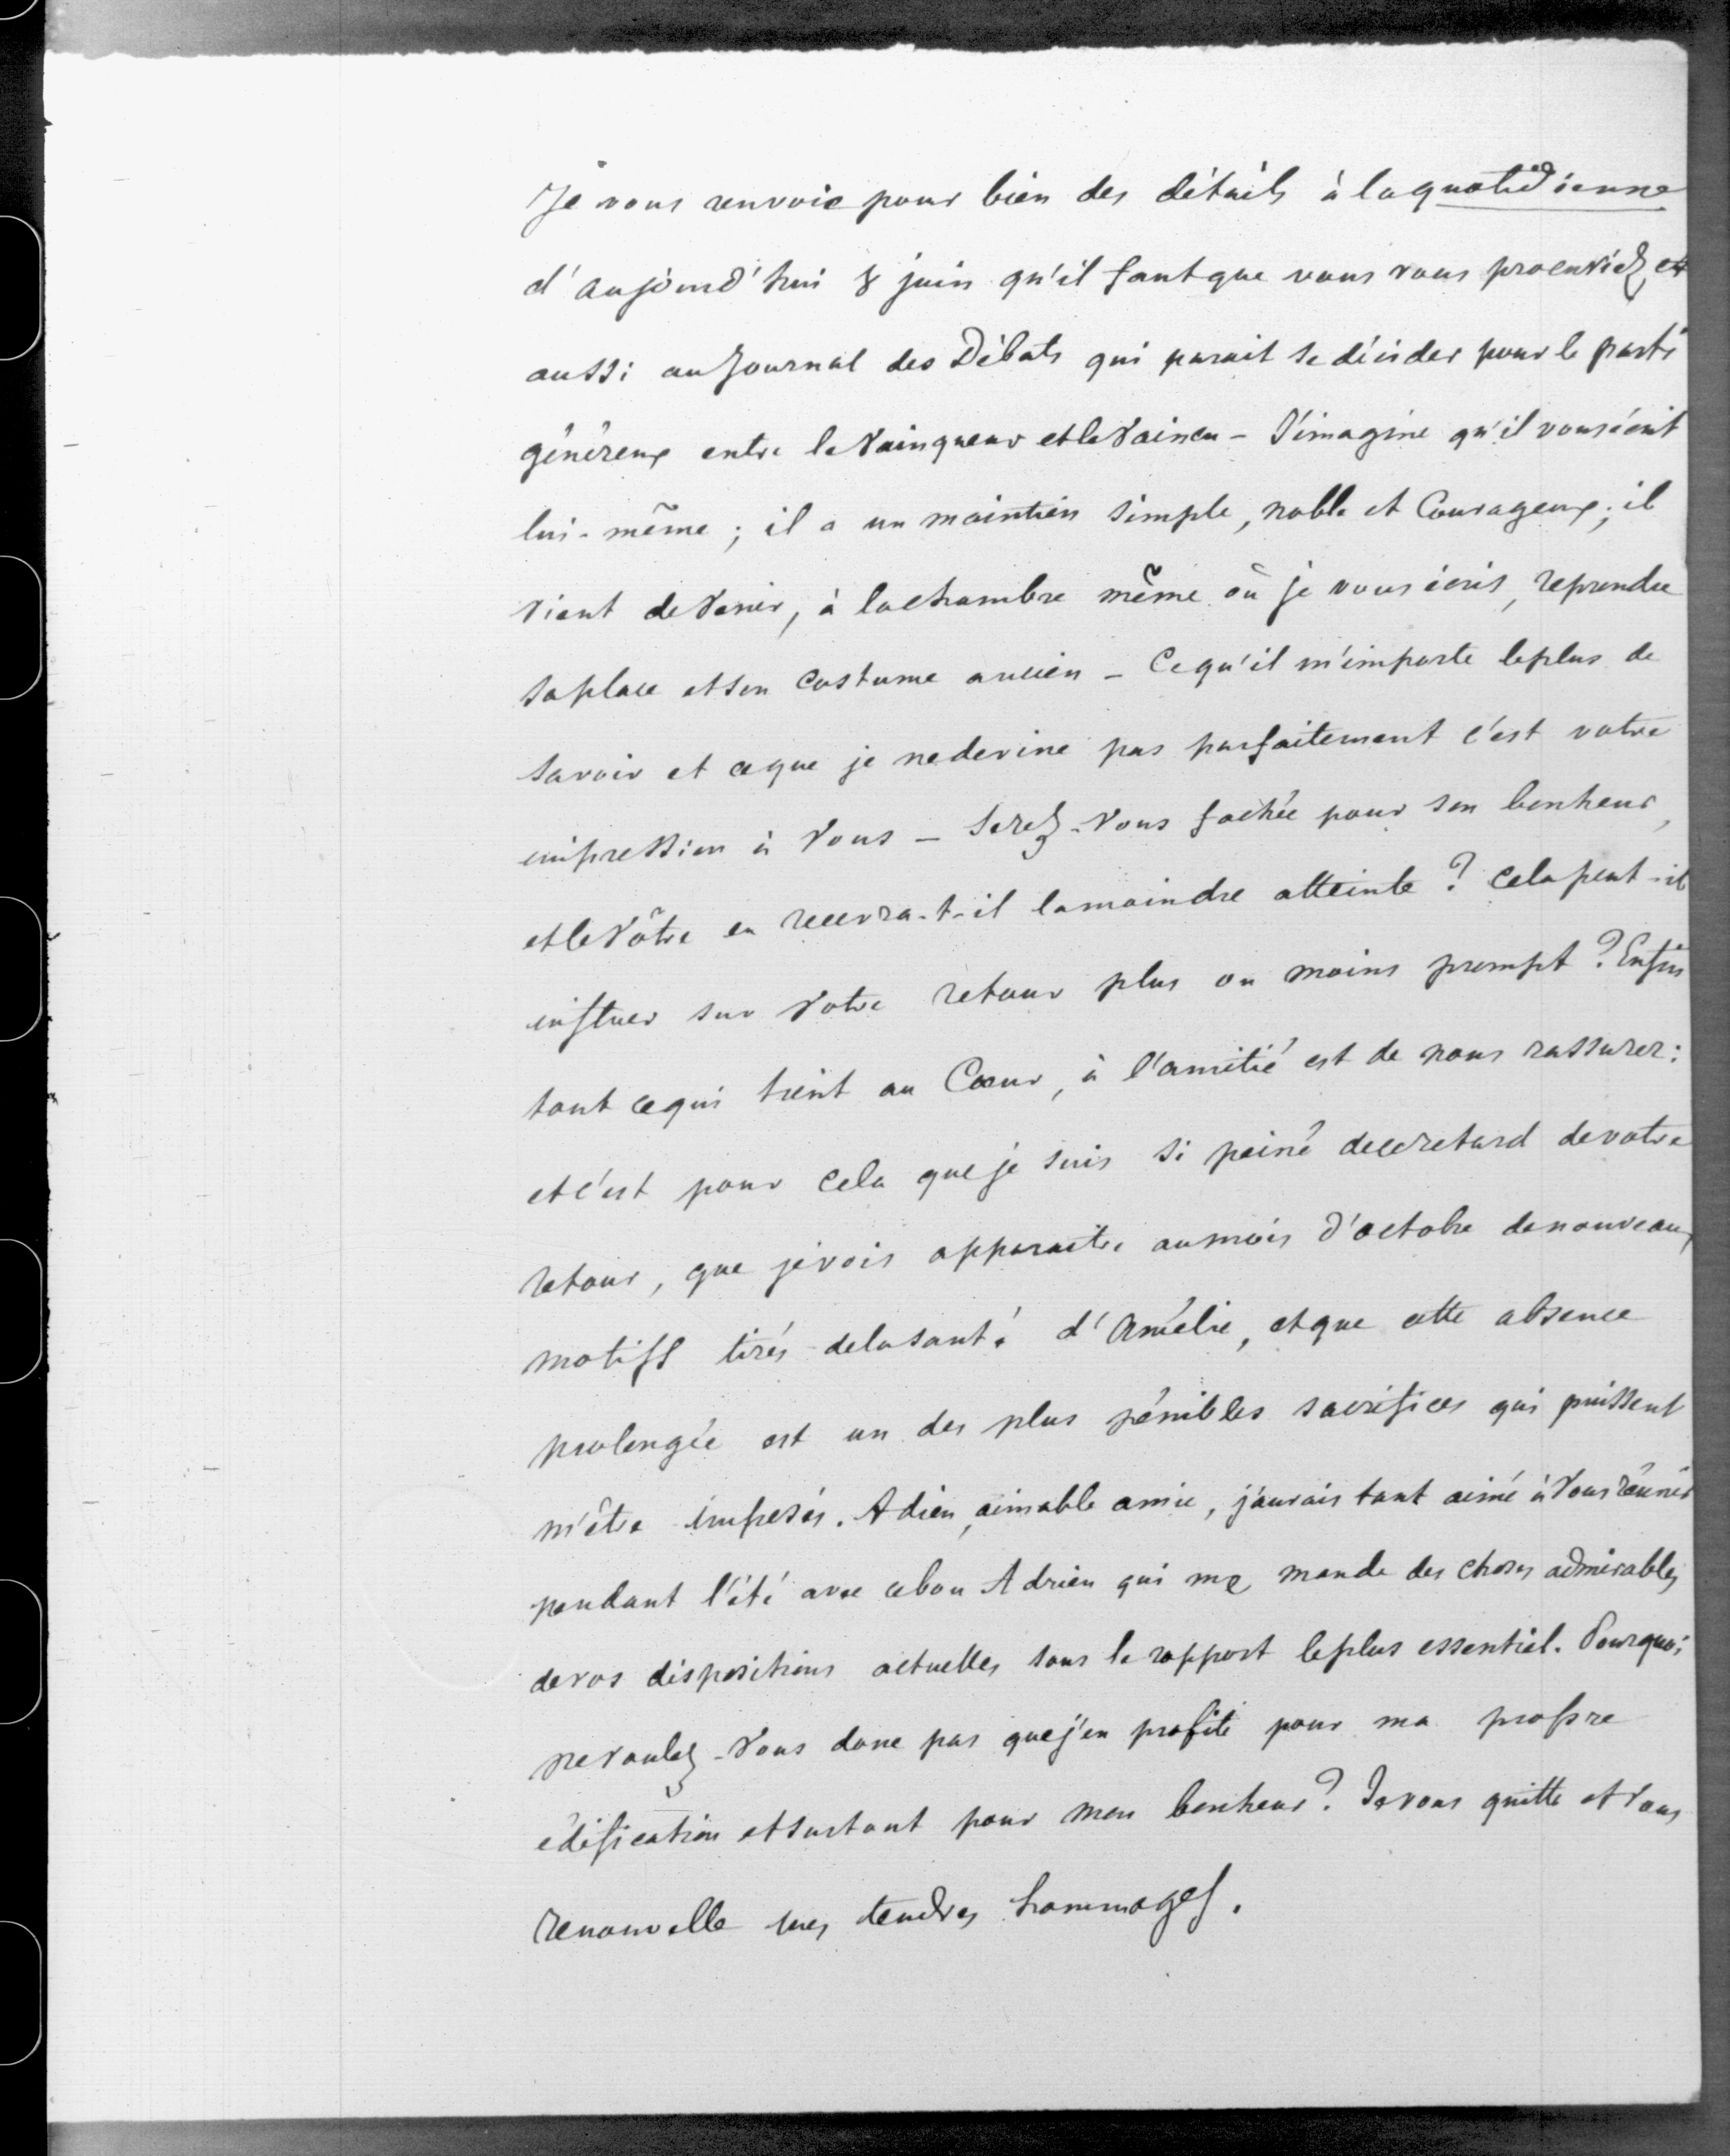 Je vous renvoie pour bien des détails à la quotidienne
d'aujourd'hui 8 juin qu'il faut que vous vous procuriez et
aussi au Journal des Débats qui parait se décider pour le parti
généreux entre le Vainqueur et le Vaincu - J'imagine qu'il vous écrit
lui-même ; il a un maintien simple, noble et Courageux ; il
vient de venir, à la chambre même où je vous écris, reprendre
sa place et son costume ancien - Ce qu'il m'importe le plus de
savoir et ce que je ne devine pas parfaitement c'est votre
impression à Vous - Serez-Vous fachée pour son bonheur,
et le Vôtre en recevra-t-il la moindre atteinte ? Cela peut-il
influer sur Votre retour plus ou moins prompt ? Enfin
tout ce qui tient au Coeur, à l'amitié est de nous rassurer :
et c'est pour cela que je suis si peiné de ce retard de votre
retour, que je vois apparaitre au mois d'octobre de nouveaux
motifs tirés de la santé d'Amélie, et que cette absence
prolongée est un des plus pénibles sacrifices qui puissent
m'être imposés. Adieu, aimable amie, j'aurais tant aimé à Vous réunir
pendant l'été avec ce bon Adrien qui me mande des choses admirables
de vos dispositions actuelles sous le rapport le plus essentiel. Pourquoi
ne voulez-Vous donc pas que j'en profite pour ma propre
édification et surtout pour mon bonheur ? Je vous quitte et Vous
renouvelle mes tendres hommages.